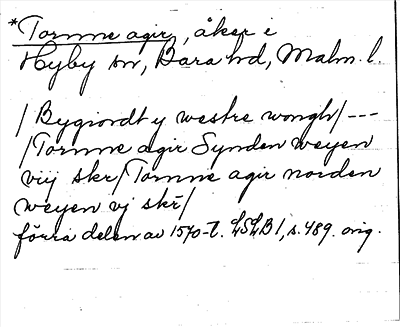 *Tornne agir, åker i
Hyby sn, Bara hd, Malm. l.
/Bygiordt y westre wongh/---
/Tornne agir Synden weyen
viij skr/Tornne agir norden
weyen vj skr/
förra delen av 1570-t. LSLB 1, s. 489. orig.